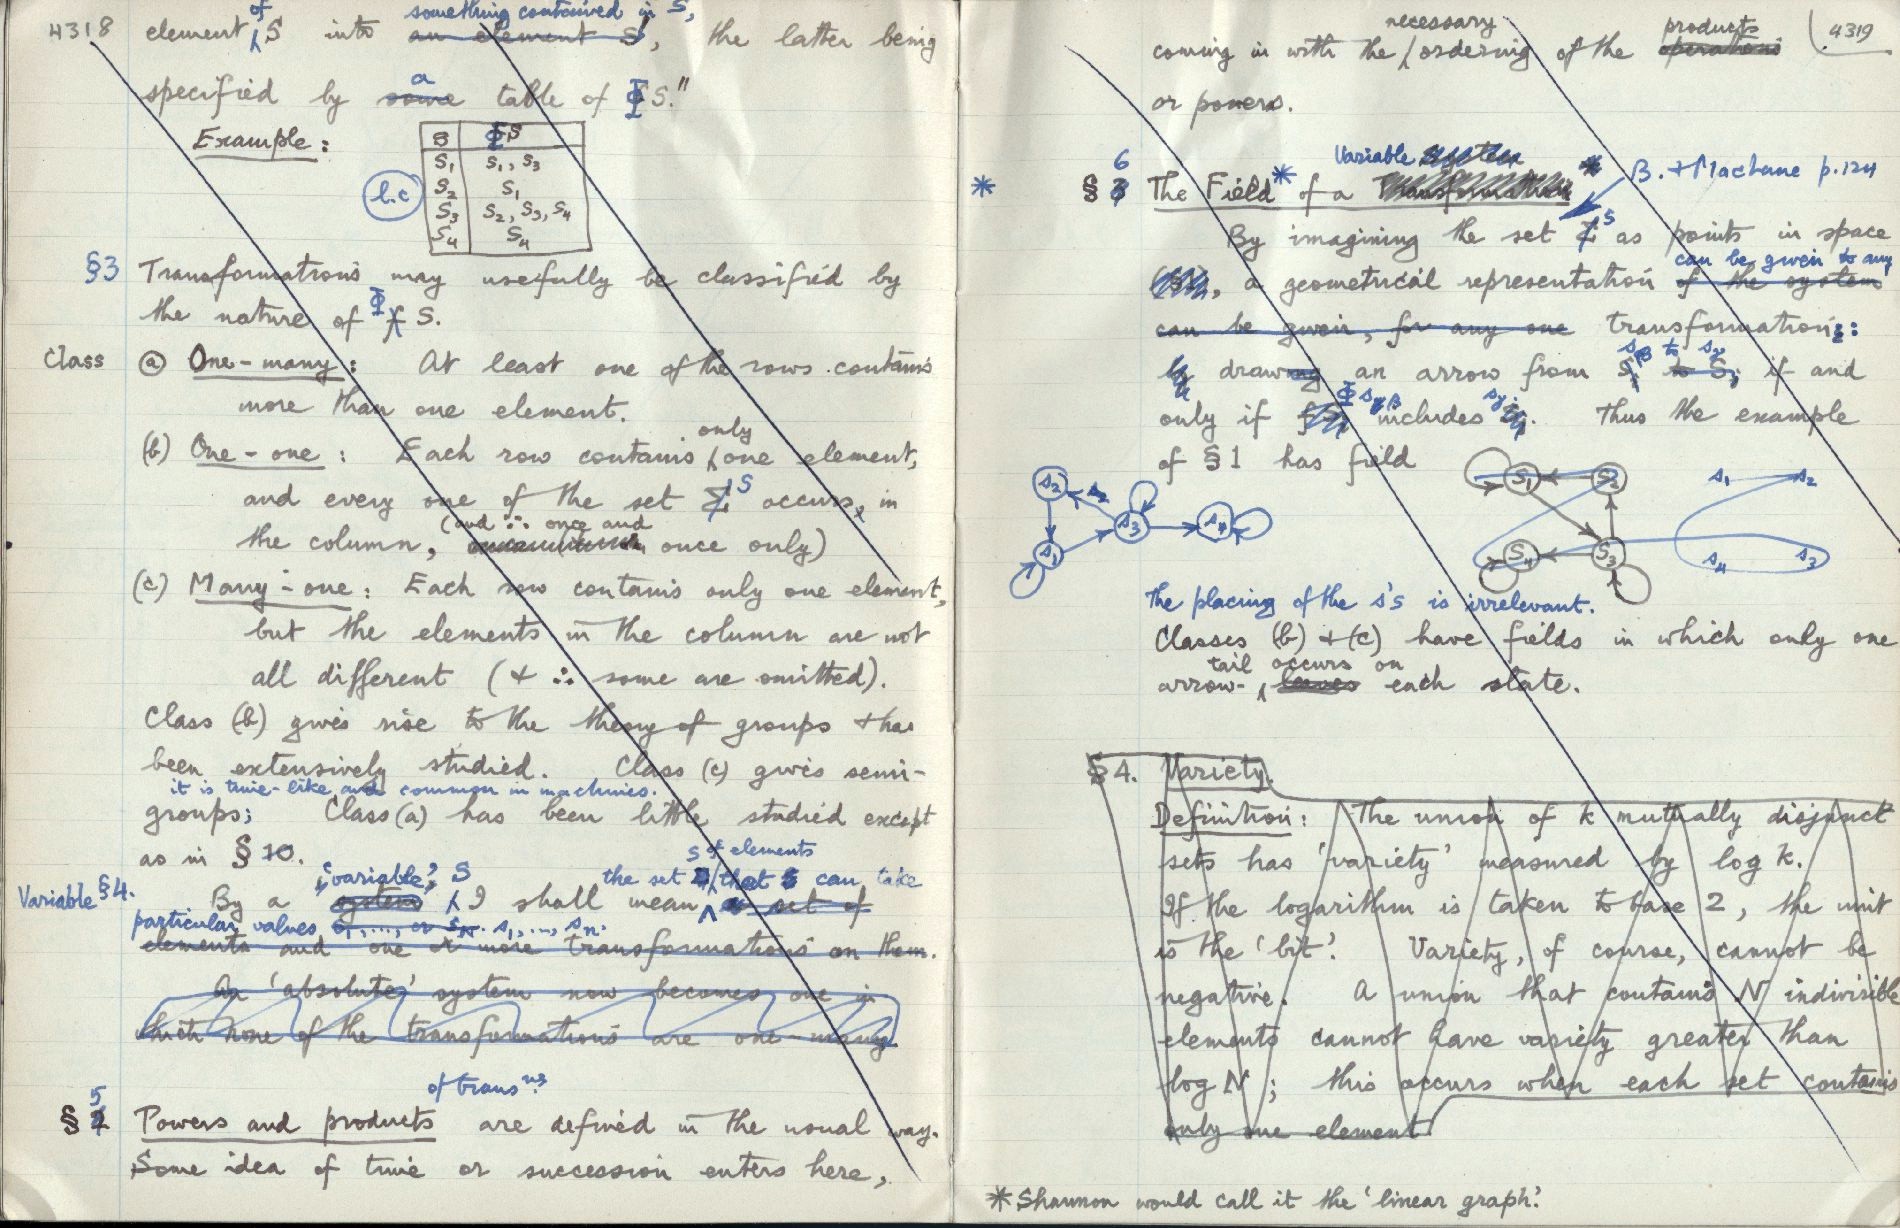 4318
of something contained in S,
element S into an element S, the latter being
a
specified by some table of Φ S."
Example:
S ΦS
S1 S1, S3
S2 S1
S3 S2, S3, S4
S4 S4
l.c
§3 Transformations may usefully be classified by
the nature of Φ S.
Class (a) One-many: At least one of the rows contains
more than one element.
only
(b) One-one: Each row contains one element,
and every one of the set S occurs, in
(and ∴ once and
the column, once only)
(c) Many-one: Each row contains only one element,
but the elements in the column are not
all different (& ∴ some are omitted).
Class (b) gives rise to the theory of groups & has
been extensively studied. Class (c) gives semi-
it is time-like and common in machines.
groups; Class (a) has been little studied except
as in § 10.
S of elements
'variable', S the set that can take
Variable §4. By a system, I shall mean a set of
particular values s1, ..., sn.
elements and one or more transformations on them.
An 'absolute' system now becomes one in
which none of the transformations are one-many.
5 of transns
§ 2 Powers and products are defined in the usual way.
Some idea of time or succession enters here,
4319
necessary products
coming in with the ordering of the operations
or powers.
6 Variable system
* § 3 The Field* of a Transformation * B. & Machine p.124
By imagining the set S as points in space
can be given to any
, a geometrical representation of the system
can be given, for any one transformation:
sβ to sγ
by drawing an arrow from Si to Sj if and
Φ sβ sγ
only if includes . Thus the example
of §1 has field
s2 s3 s4 s1
S1 S2 S4 S3
s1 s2 s4 s3
The placing of the s's is irrelevant.
Classes (b) & (c) have fields in which only one
tail occurs on
arrow- leaves each state.
§4. Variety.
Definition: The union of k mutually disjunct
sets has 'variety' measured by log k.
If the logarithm is taken to base 2, the unit
is the 'bit'. Variety, of course, cannot be
negative. A union that contains N indivisible
elements cannot have variety greater than
log N; this occurs when each set contains
only one element
* Shannon would call it the 'linear graph'.